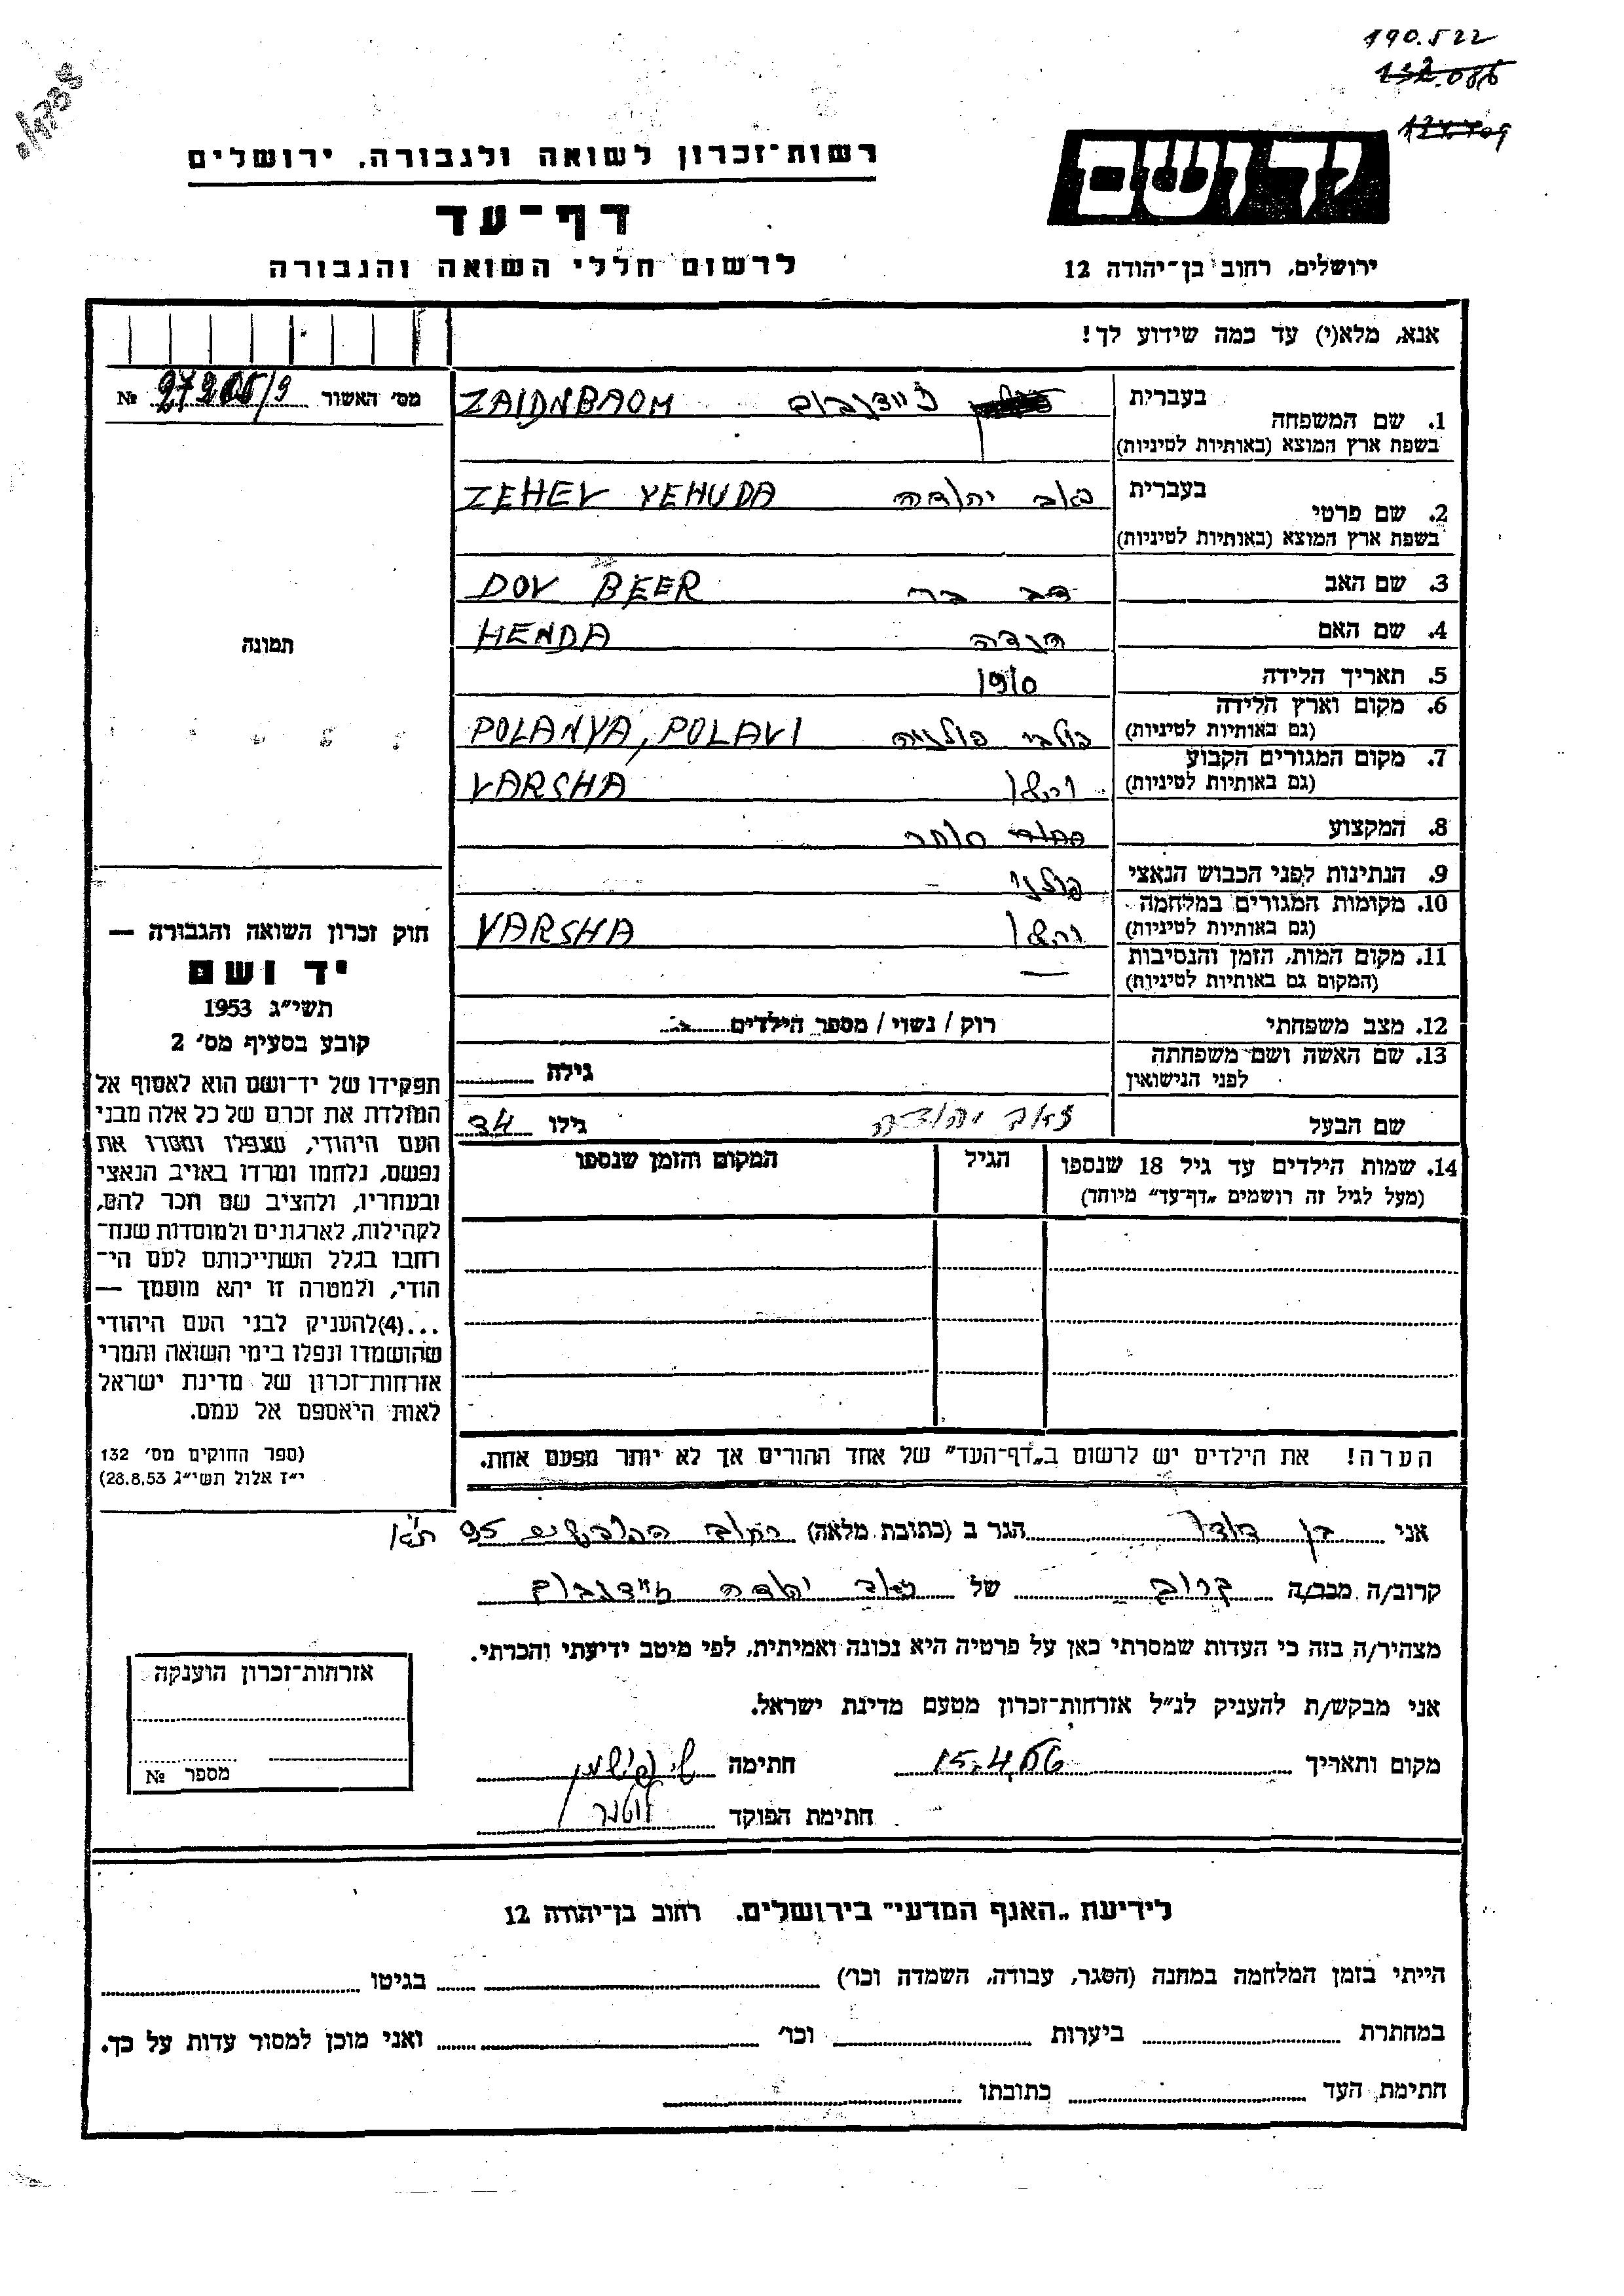 190.522
יד ושם
רשות־זכרון לשואה ולגבורה, ירושלים
דף־עד
לרשום חללי השואה והגבורה
ירושלים, רחוב בן־יהודה 12
אנא, מלא(י) עד כמה שידוע לך!
מס׳ האשור №
בעברית זיידנבוים ZAIDNBAOM
1. שם המשפחה
בשפת ארץ המוצא (באותיות לטיניות)
בעברית זאב יהודה ZEHEV YEHUDA
2. שם פרטי
בשפת ארץ המוצא (באותיות לטיניות)
3. שם האב דב בר DOV BEER
4. שם האם הנדה HENDA
5. תאריך הלידה 1910
6. מקום וארץ הלידה
(גם באותיות לטיניות) פולבי פולניה POLANYA, POLAVI
7. מקום המגורים הקבוע
(גם באותיות לטיניות) ורשה VARSHA
8. המקצוע סוחר
9. הנתינות לפני הכבוש הנאצי פולני
10. מקומות המגורים במלחמה
(גם באותיות לטיניות) ורשה VARSHA
11. מקום המות, הזמן והנסיבות —
(המקום גם באותיות לטיניות)
12. מצב משפחתי רווק / נשוי / מספר הילדים
13. שם האשה ושם משפחתה
לפני הנישואין גילה
שם הבעל זאב יהודה גילו 34
14. שמות הילדים עד גיל 18 שנספו הגיל המקום והזמן שנספו
(מעל לגיל זה רושמים „דף־עד” מיוחד)
הערה! את הילדים יש לרשום ב„דף־העד” של אחד ההורים אך לא יותר מפעם אחת.
תמונה
חוק זכרון השואה והגבורה —
יד ושם
תשי״ג 1953
קובע בסעיף מס׳ 2
תפקידו של יד־ושם הוא לאסוף אל
המולדת את זכרם של כל אלה מבני
העם היהודי, שנפלו ומסרו את
נפשם, נלחמו ומרדו באויב הנאצי
ובעוזריו, ולהציב שם וזכר להם,
לקהילות, לארגונים ולמוסדות שנח־
רבו בגלל השתייכותם לעם הי־
הודי, ולמטרה זו יהא מוסמך —
...(4) להעניק לבני העם היהודי
שהושמדו ונפלו בימי השואה והמרי
אזרחות־זכרון של מדינת ישראל
לאות היאספם אל עמם.
(ספר החוקים מס׳ 132
י״ז אלול תשי״ג 28.8.53)
אני בן דודו הגר ב (כתובת מלאה) רחוב 95 ת״א
קרוב/ה מכר/ה קרוב של זאב יהודה זיידנבוים
מצהיר/ה בזה כי העדות שמסרתי כאן על פרטיה היא נכונה ואמיתית, לפי מיטב ידיעתי והכרתי.
אני מבקש/ת להעניק לנ״ל אזרחות־זכרון מטעם מדינת ישראל.
מקום ותאריך 15.4.56 חתימה
חתימת הפוקד
אזרחות־זכרון הוענקה
מספר №
לידיעת „האגף המדעי” בירושלים, רחוב בן־יהודה 12
הייתי בזמן המלחמה במחנה (הסגר, עבודה, השמדה וכו׳) בגיטו
במחתרת ביערות וכו׳ ואני מוכן למסור עדות על כך.
חתימת העד כתובתו